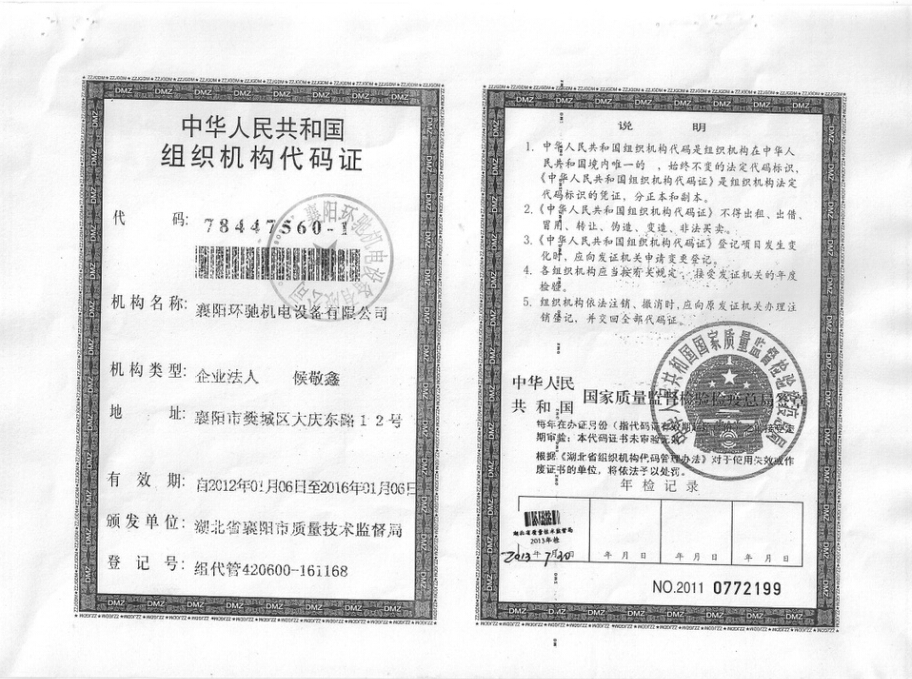 中华人民共和国
组织机构代码证
代 码: 78447560-1
机构名称: 襄阳环驰机电设备有限公司
机构类型: 企业法人 候敬鑫
地 址: 襄阳市樊城区大庆东路12号
有 效 期: 自2012年01月06日至2016年01月06日
颁发单位: 湖北省襄阳市质量技术监督局
登 记 号: 组代管420600-161168
襄阳环驰机电设备有限公司
说 明
1. 中华人民共和国组织机构代码是组织机构在中华人
民共和国境内唯一的、始终不变的法定代码标识,
《中华人民共和国组织机构代码证》是组织机构法定
代码标识的凭证,分正本和副本。
2.《中华人民共和国组织机构代码证》不得出租、出借、
冒用、转让、伪造、变造、非法买卖。
3.《中华人民共和国组织机构代码证》登记项目发生变
化时,应向发证机关申请变更登记。
4. 各组织机构应当按有关规定,接受发证机关的年度
检验。
5. 组织机构依法注销、撤消时,应向原发证机关办理注
销登记,并交回全部代码证。
中华人民
共和国 国家质量监督检验检疫总局
中华人民共和国国家质量监督检验检疫总局
期审验;本代码证书未审验无效
根据《湖北省组织机构代码管理办法》对于使用失效或作
废证书的单位,将依法予以处罚。
年检记录
湖北省质量技术监督局
2013年检
2013年7月30
年 月 日 年 月 日 年 月 日
NO.2011 0772199